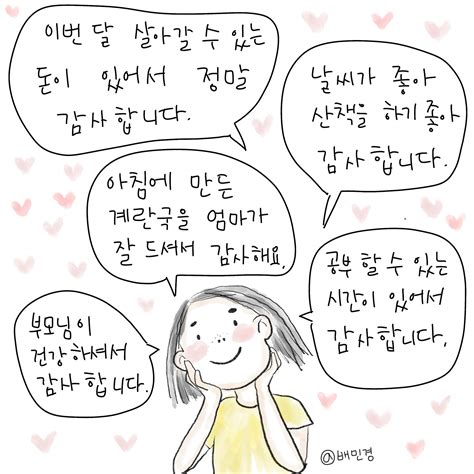 이번 달 살아갈 수 있는
돈이 있어서 정말
감사합니다.
날씨가 좋아
산책을 하기 좋아
감사합니다.
아침에 만든
계란국을 엄마가
잘 드셔서 감사해요.
공부 할 수 있는
시간이 있어서
감사합니다.
부모님이
건강하셔서
감사합니다.
@배민경